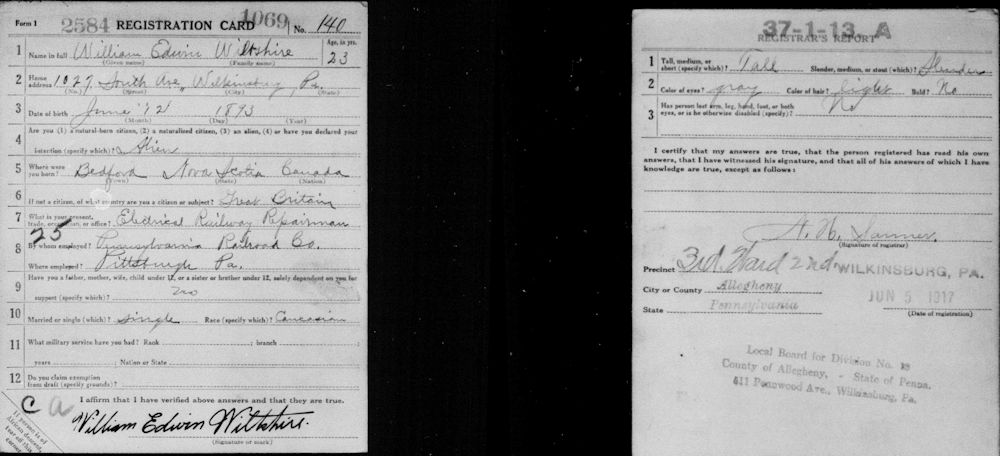 Form 1 2584 REGISTRATION CARD 1069 No. 140
1 Name in full William Edwin Wiltshire Age, in yrs.
(Given name) (Family name) 23
2 Home address 1027 South Ave, Wilkinsburg, Pa.
(No.) (Street) (City) (State)
3 Date of birth June 12 1893
(Month) (Day) (Year)
Are you (1) a natural-born citizen, (2) a naturalized citizen, (3) an alien, (4) or have you declared your
4 intention (specify which)? Alien
5 Where were you born? Bedford Nova Scotia Canada
(Town) (State) (Nation)
6 If not a citizen, of what country are you a citizen or subject? Great Britain
7 What is your present trade, occupation, or office? Electrical Railway Repairman
25
8 By whom employed? Pennsylvania Railroad Co.
Where employed? Pittsburgh Pa.
9 Have you a father, mother, wife, child under 12, or a sister or brother under 12, solely dependent on you for
support (specify which)? no
10 Married or single (which)? Single Race (specify which)? Caucasian
11 What military service have you had? Rank ; branch ;
years ; Nation or State
12 Do you claim exemption from draft (specify grounds)?
C a I affirm that I have verified above answers and that they are true.
William Edwin Wiltshire.
(Signature or mark)
If person is of
African descent,
tear off this
corner
37-1-13 A
REGISTRAR'S REPORT
1 Tall, medium, or short (specify which)? Tall Slender, medium, or stout (which)? Slender
2 Color of eyes? gray Color of hair? Light Bald? No
3 Has person lost arm, leg, hand, foot, or both eyes, or is he otherwise disabled (specify)? No
I certify that my answers are true, that the person registered has read his own
answers, that I have witnessed his signature, and that all of his answers of which I have
knowledge are true, except as follows:
(Signature of registrar)
Precinct 3rd. Ward 2nd WILKINSBURG, PA.
City or County Allegheny
JUN 5 1917
State Pennsylvania
(Date of registration)
Local Board for Division No.
County of Allegheny, - State of Penna.
611 Pennwood Ave., Wilkinsburg, Pa.